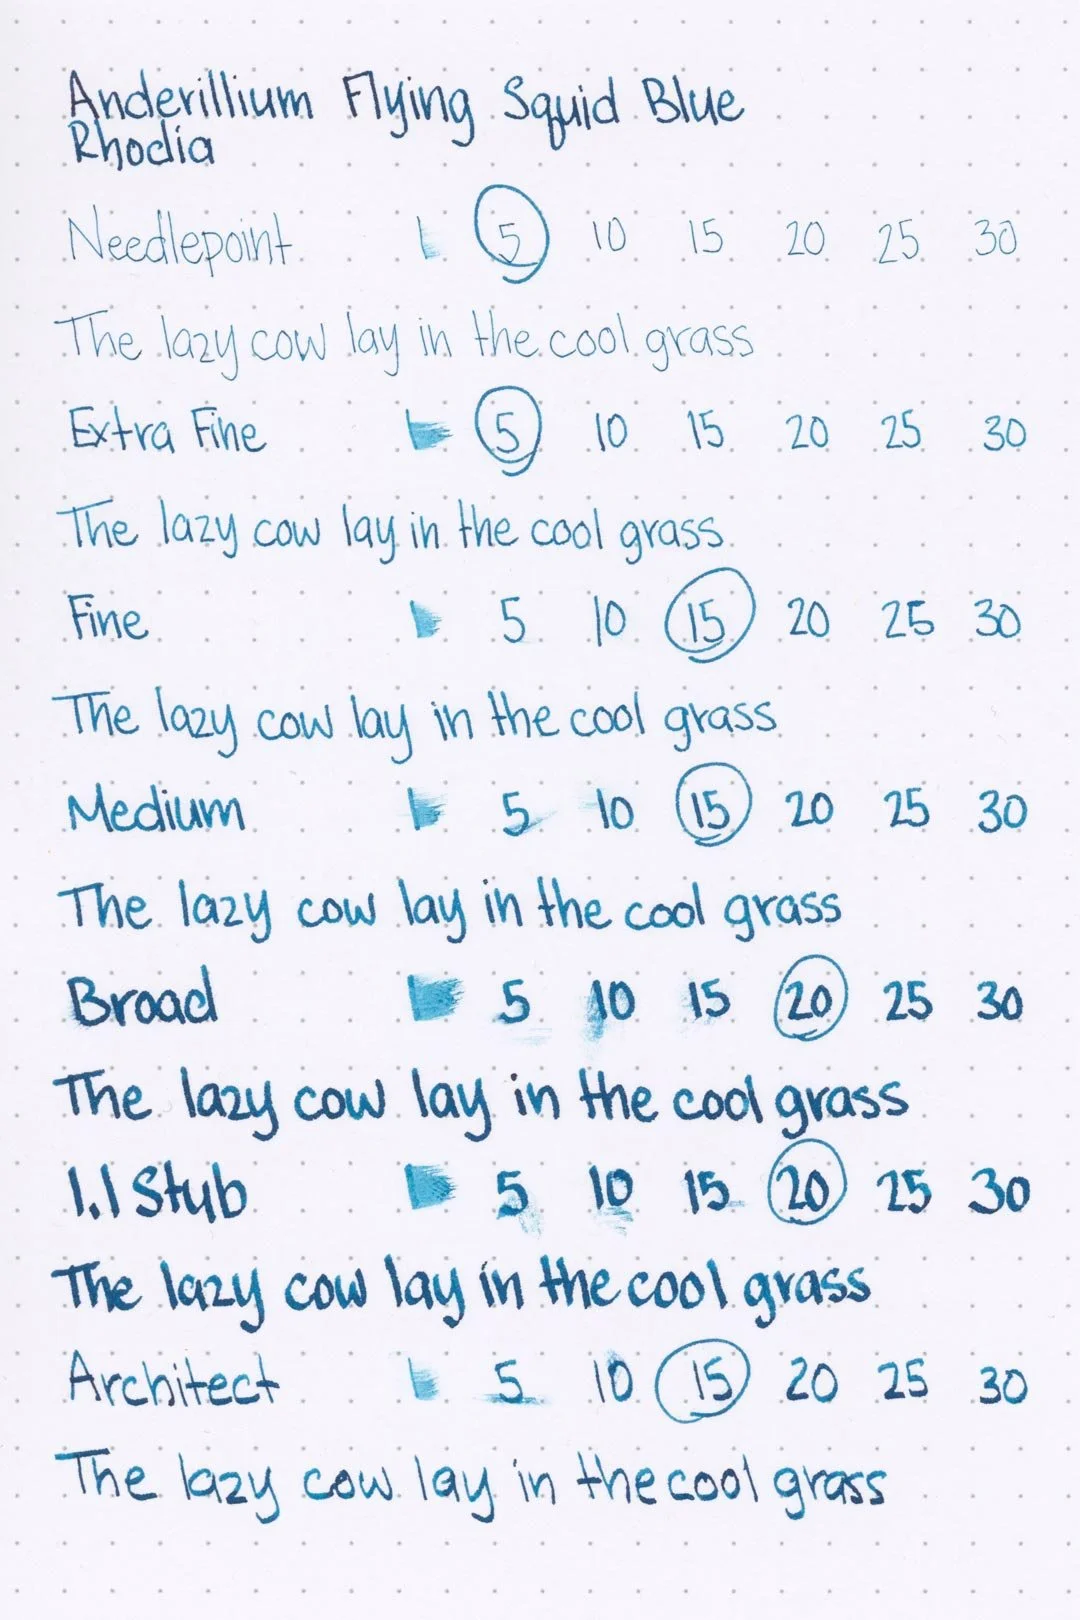 Anderillium Flying Squid Blue
Rhodia
Needlepoint 5 10 15 20 25 30
The lazy cow lay in the cool grass
Extra Fine 5 10 15 20 25 30
The lazy cow lay in the cool grass
Fine 5 10 15 20 25 30
The lazy cow lay in the cool grass
Medium 5 10 15 20 25 30
The lazy cow lay in the cool grass
Broad 5 10 15 20 25 30
The lazy cow lay in the cool grass
1.1 Stub 5 10 15 20 25 30
The lazy cow lay in the cool grass
Architect 5 10 15 20 25 30
The lazy cow lay in the cool grass